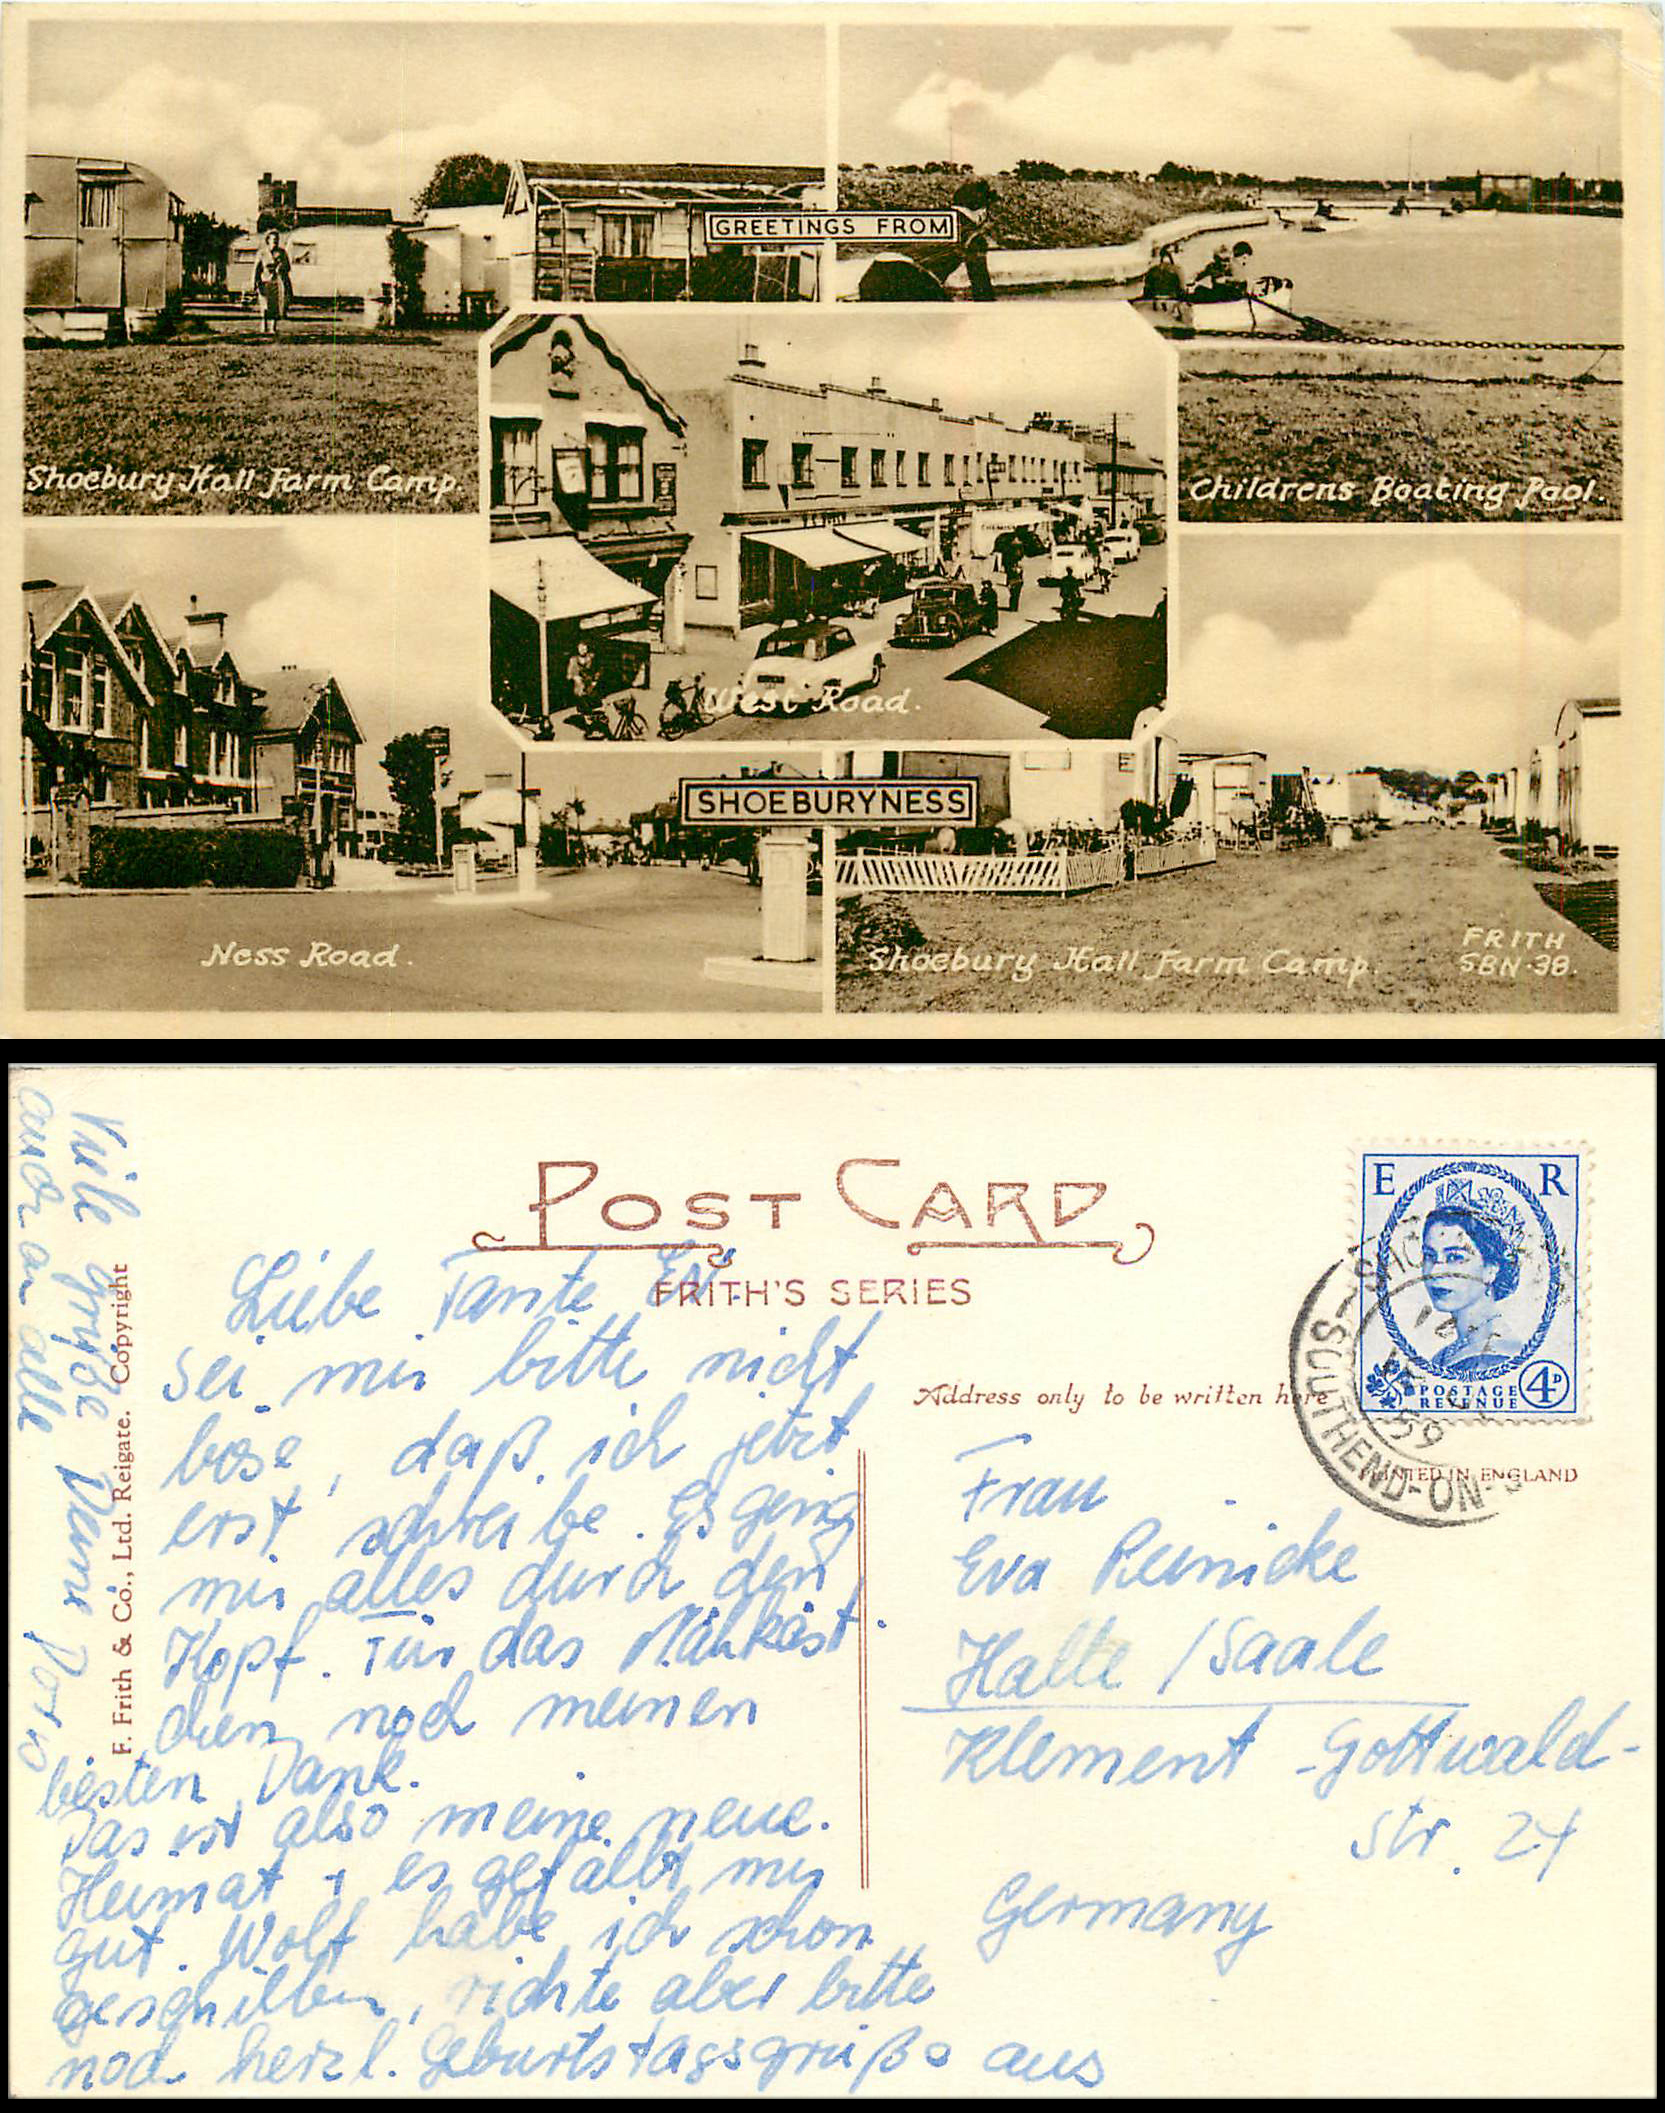 GREETINGS FROM
Shoebury Hall Farm Camp.
Childrens Boating Pool.
West Road.
Ness Road.
SHOEBURYNESS
Shoebury Hall Farm Camp.
FRITH
SBN·38.
POST CARD
FRITH'S SERIES
Address only to be written here
PRINTED IN ENGLAND
F. Frith & Co., Ltd. Reigate. Copyright
E R
POSTAGE
REVENUE
4D
SOUTHEND-ON-S
59
Liebe Tante Ev.
sei mir bitte nicht
böse, daß ich jetzt
erst schreibe. Es ging
mir alles durch den
Kopf. Für das Nähkäst
chen noch meinen
besten Dank.
Das ist also meine neue.
Heimat + es gefällt mir
gut. Wolf habe ich schon
geschrieben, richte aber bitte
noch herzl. Geburtstagsgrüße aus
Viele Grüße Deine
auch an alle
Frau
Eva Reinicke
Halle / Saale
Klement-Gottwald-
Str. 24
Germany